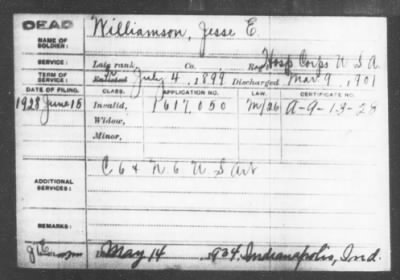 DEAD
NAME OF SOLDIER: Williamson, Jesse E.
SERVICE: Late rank, Co. Reg't Hosp Corps U S A
TERM OF SERVICE: Enlisted July 4, 1899 Discharged Mar. 9, 1901
DATE OF FILING. CLASS. APPLICATION NO. LAW. CERTIFICATE NO.
1928 June 15 Invalid, 1617,050 A-9-13-28
Widow,
Minor,
ADDITIONAL SERVICES: C 6 & N 6 U S Art
REMARKS:
May 14, 1934, Indianapolis, Ind.